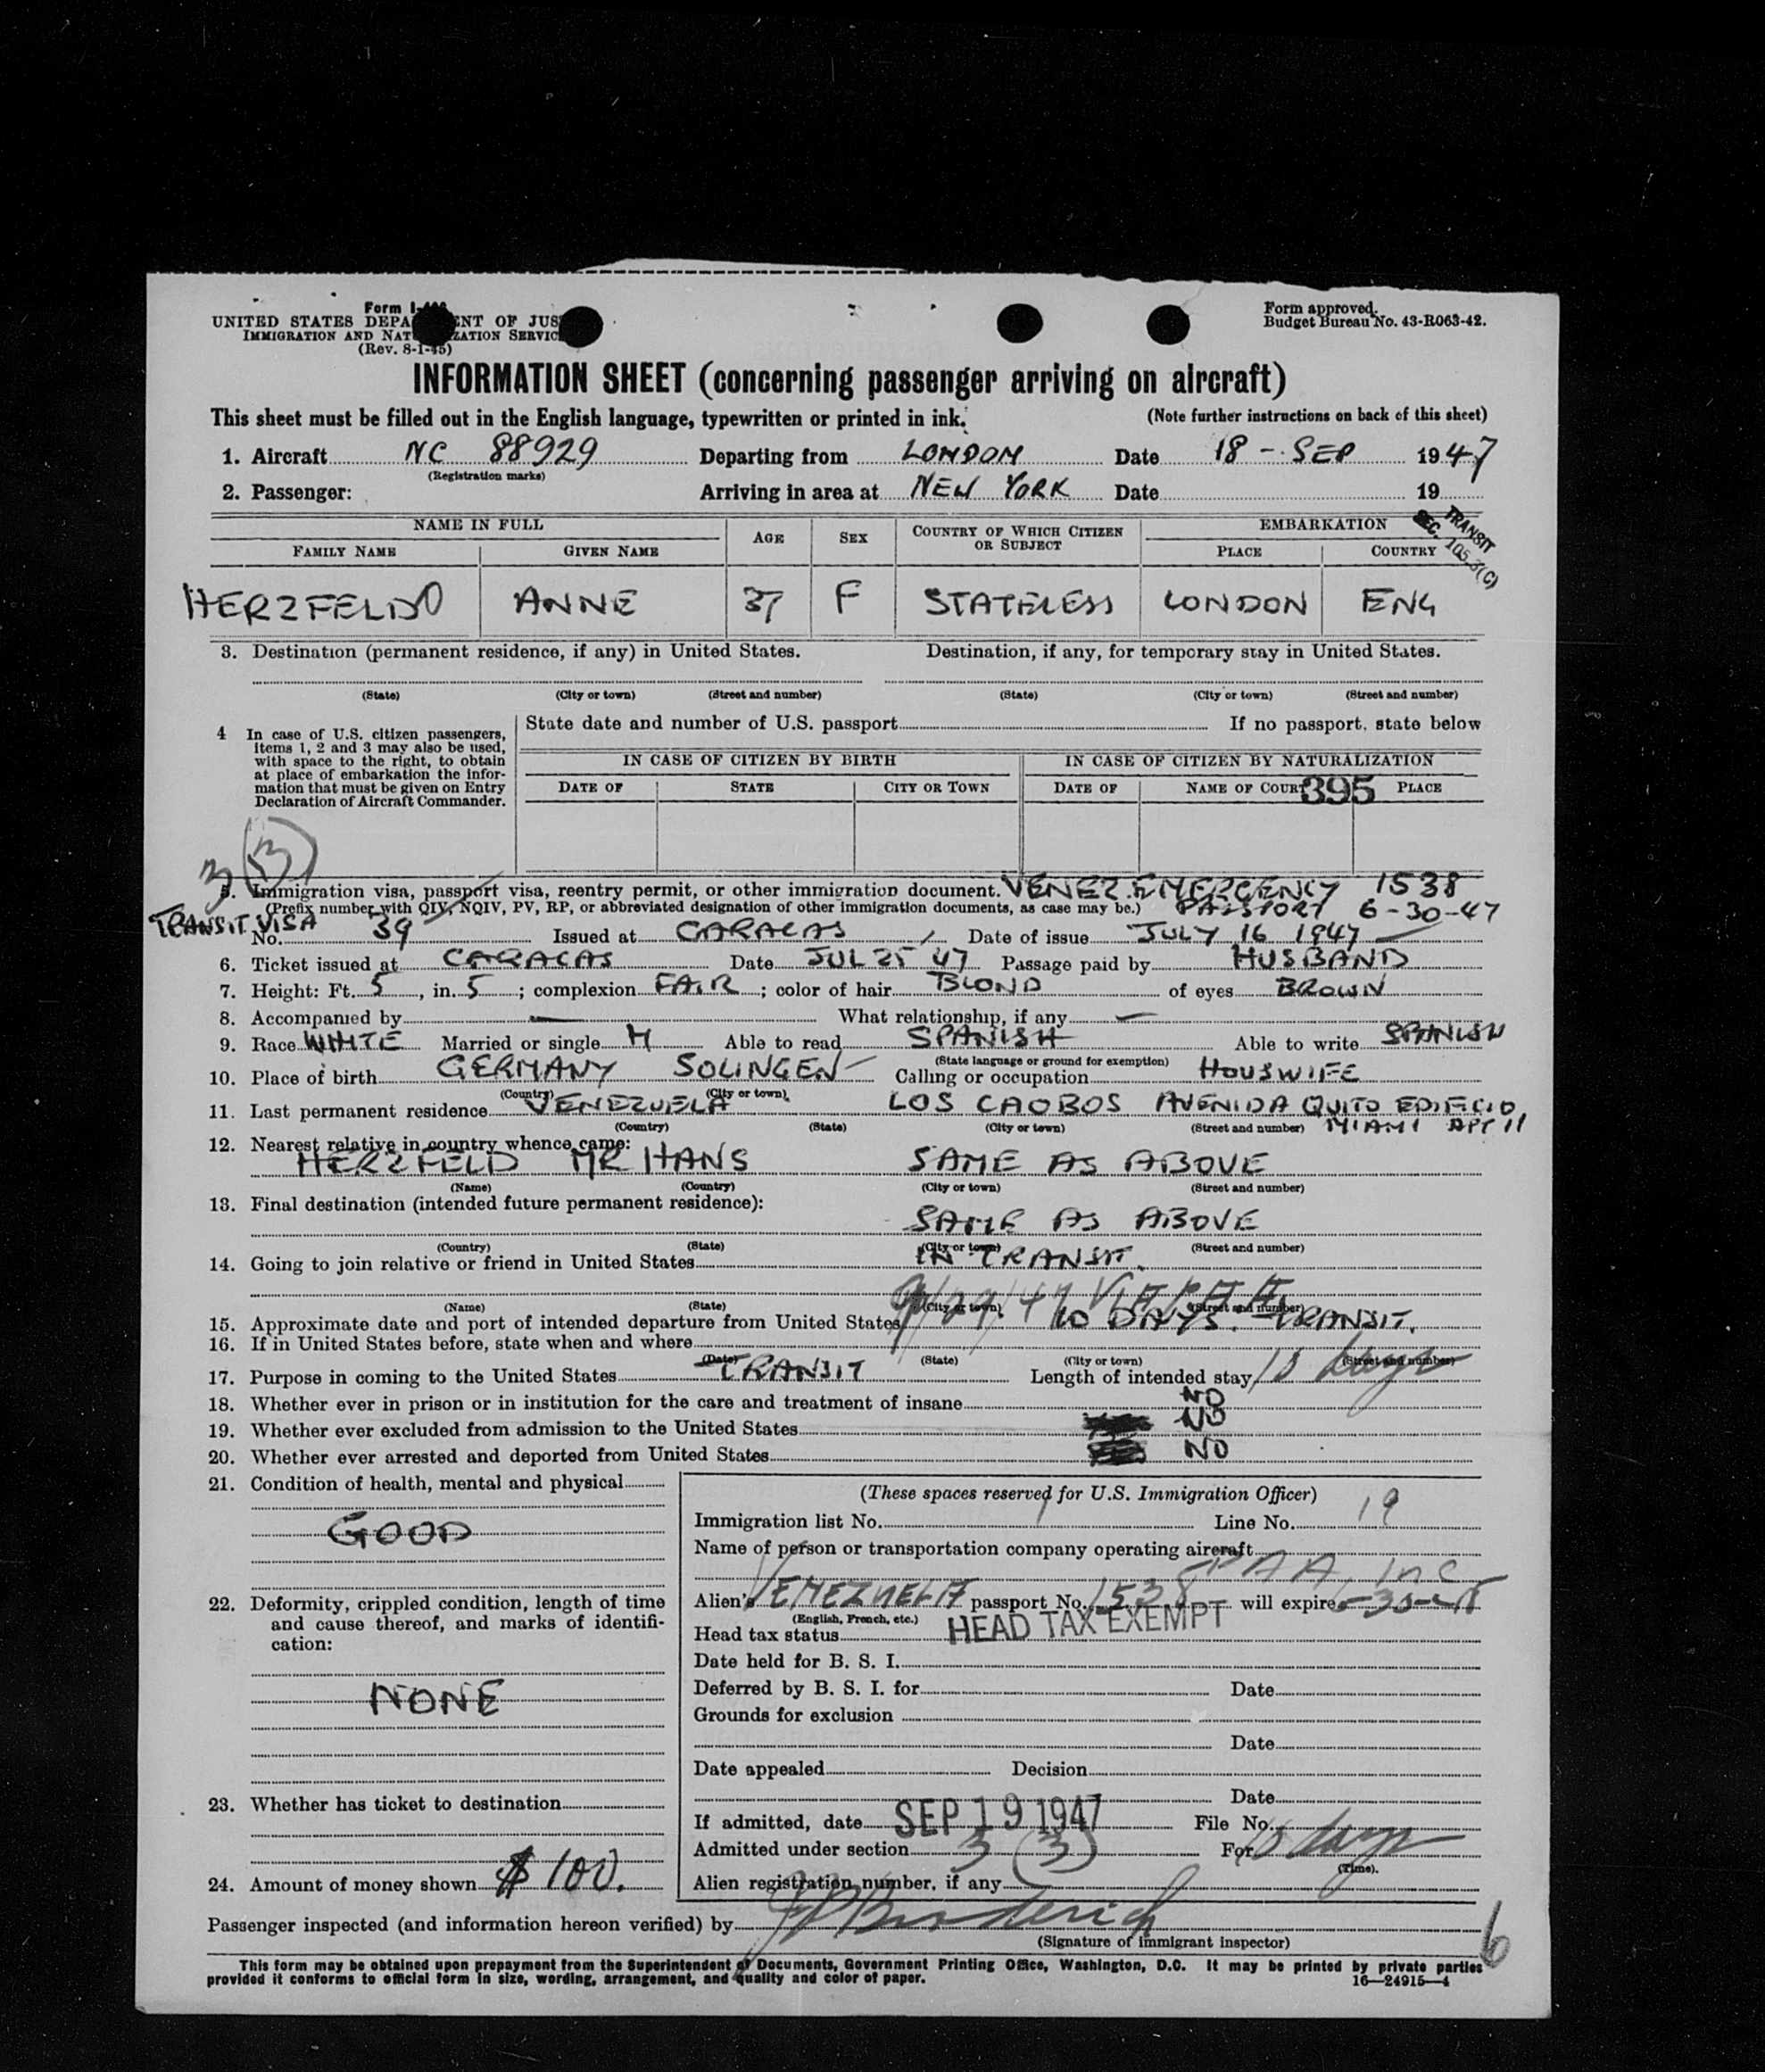 Form I-
UNITED STATES DEPA ENT OF JUS
IMMIGRATION AND NAT ZATION SERVIC
(Rev. 8-1-45)
Form approved.
Budget Bureau No. 43-R063-42.
INFORMATION SHEET (concerning passenger arriving on aircraft)
This sheet must be filled out in the English language, typewritten or printed in ink. (Note further instructions on back of this sheet)
1. Aircraft NC 88929 Departing from LONDON Date 18 - SEP 1947
(Registration marks)
2. Passenger: Arriving in area at NEW YORK Date 19
TRANSIT
SEC. 105.3(C)
NAME IN FULL AGE SEX COUNTRY OF WHICH CITIZEN OR SUBJECT EMBARKATION
FAMILY NAME GIVEN NAME PLACE COUNTRY
HERZFELD ANNE 37 F STATELESS LONDON ENG
3. Destination (permanent residence, if any) in United States. Destination, if any, for temporary stay in United States.
(State) (City or town) (Street and number) (State) (City or town) (Street and number)
4 In case of U.S. citizen passengers,
items 1, 2 and 3 may also be used,
with space to the right, to obtain
at place of embarkation the infor-
mation that must be given on Entry
Declaration of Aircraft Commander.
State date and number of U.S. passport If no passport, state below
IN CASE OF CITIZEN BY BIRTH IN CASE OF CITIZEN BY NATURALIZATION
DATE OF STATE CITY OR TOWN DATE OF NAME OF COURT 395 PLACE
3 (3)
5. Immigration visa, passport visa, reentry permit, or other immigration document. VENEZ. EMERGENCY 1538
(Prefix number with QIV, NQIV, PV, RP, or abbreviated designation of other immigration documents, as case may be.) PASSPORT 6-30-47
TRANSIT VISA
No. 39 Issued at CARACAS Date of issue JULY 16 1947
6. Ticket issued at CARACAS Date JUL 25 47 Passage paid by HUSBAND
7. Height: Ft. 5, in. 5; complexion FAIR; color of hair BLOND of eyes BROWN
8. Accompanied by — What relationship, if any —
9. Race WHITE Married or single M Able to read SPANISH Able to write SPANISH
(State language or ground for exemption)
10. Place of birth GERMANY SOLINGEN Calling or occupation HOUSWIFE
(Country) (City or town)
11. Last permanent residence VENEZUELA LOS CAOBOS AVENIDA QUITO EDIFICIO,
(Country) (State) (City or town) (Street and number) MIAMI APT 11
12. Nearest relative in country whence came:
HERZFELD MR HANS SAME AS ABOVE
(Name) (Country) (City or town) (Street and number)
13. Final destination (intended future permanent residence):
SAME AS ABOVE
(Country) (State) (City or town) (Street and number)
14. Going to join relative or friend in United States IN TRANSIT.
(Name) (State) (City or town) (Street and number)
15. Approximate date and port of intended departure from United States 9/29/47 10 DAYS. TRANSIT.
16. If in United States before, state when and where
(Date) (State) (City or town) (Street and number)
17. Purpose in coming to the United States TRANSIT Length of intended stay days
18. Whether ever in prison or in institution for the care and treatment of insane NO
19. Whether ever excluded from admission to the United States NO
20. Whether ever arrested and deported from United States NO
21. Condition of health, mental and physical
GOOD
22. Deformity, crippled condition, length of time
and cause thereof, and marks of identifi-
cation:
NONE
23. Whether has ticket to destination
24. Amount of money shown $100.
(These spaces reserved for U.S. Immigration Officer)
Immigration list No. 1 Line No. 19
Name of person or transportation company operating aircraft
PAA Inc
Alien's VENEZUELA passport No. 1538 will expire 6-30-48
(English, French, etc.)
Head tax status HEAD TAX EXEMPT
Date held for B. S. I.
Deferred by B. S. I. for Date
Grounds for exclusion
Date
Date appealed Decision
Date
If admitted, date SEP 19 1947 File No.
Admitted under section 3 (3) For days
(Time).
Alien registration number, if any
Passenger inspected (and information hereon verified) by
(Signature of immigrant inspector)
6
This form may be obtained upon prepayment from the Superintendent of Documents, Government Printing Office, Washington, D.C. It may be printed by private parties
provided it conforms to official form in size, wording, arrangement, and quality and color of paper. 16—24915—4